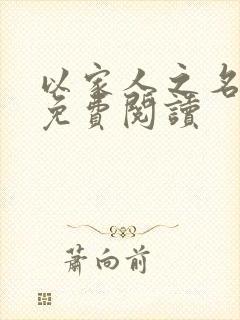 以家人之名
免費閱讀
蕭向前